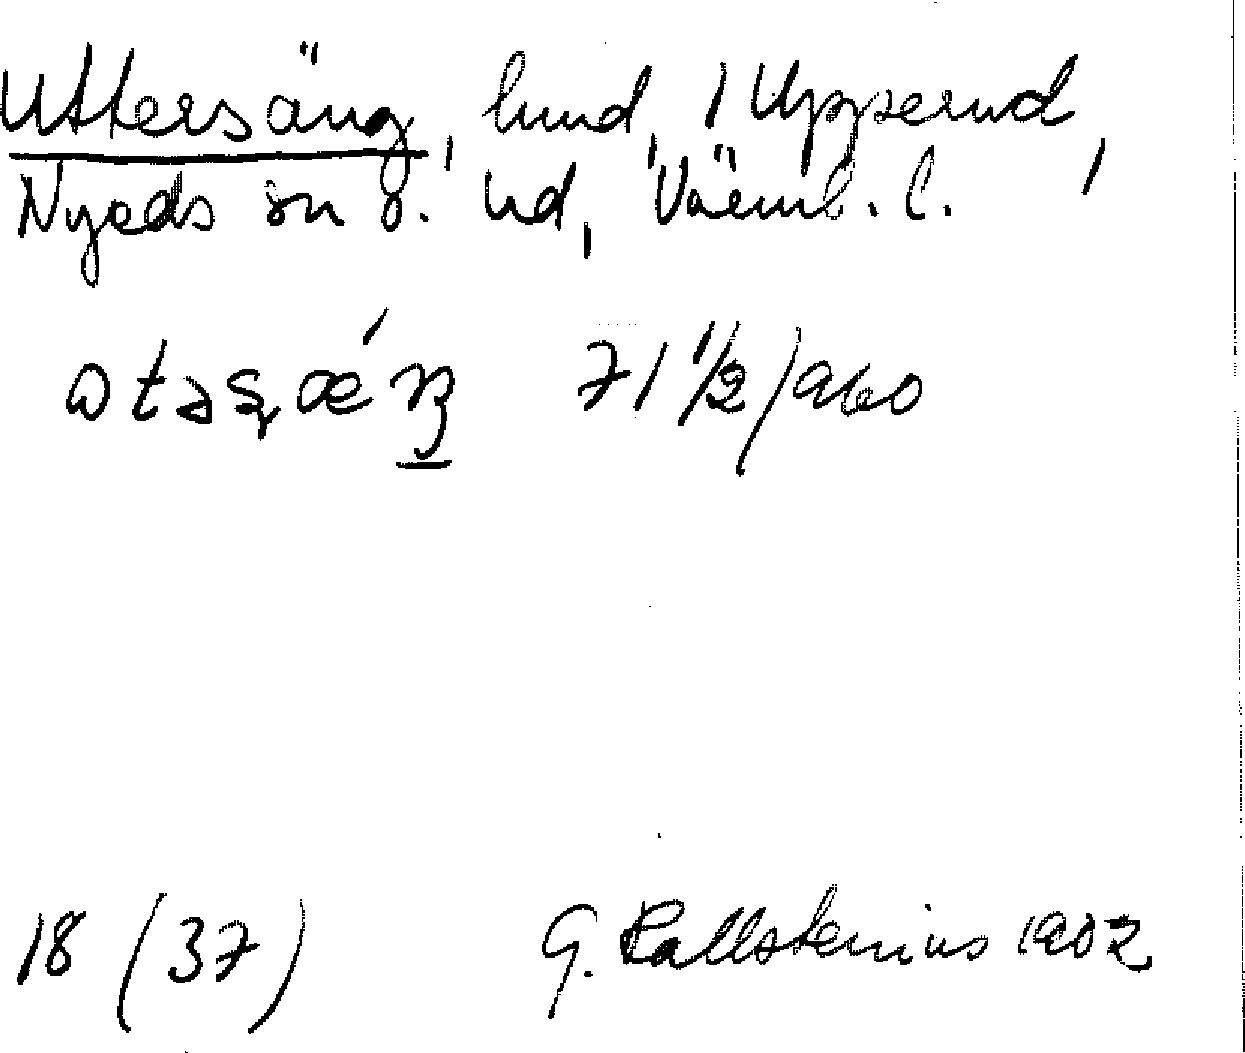 Uttersäng, lund, i Uppserud,
Nyeds sn o. hd, Värml. l.
ɷtəʂǽŋ 71 1/2/960
18 (37) G. Kallstenius 1902